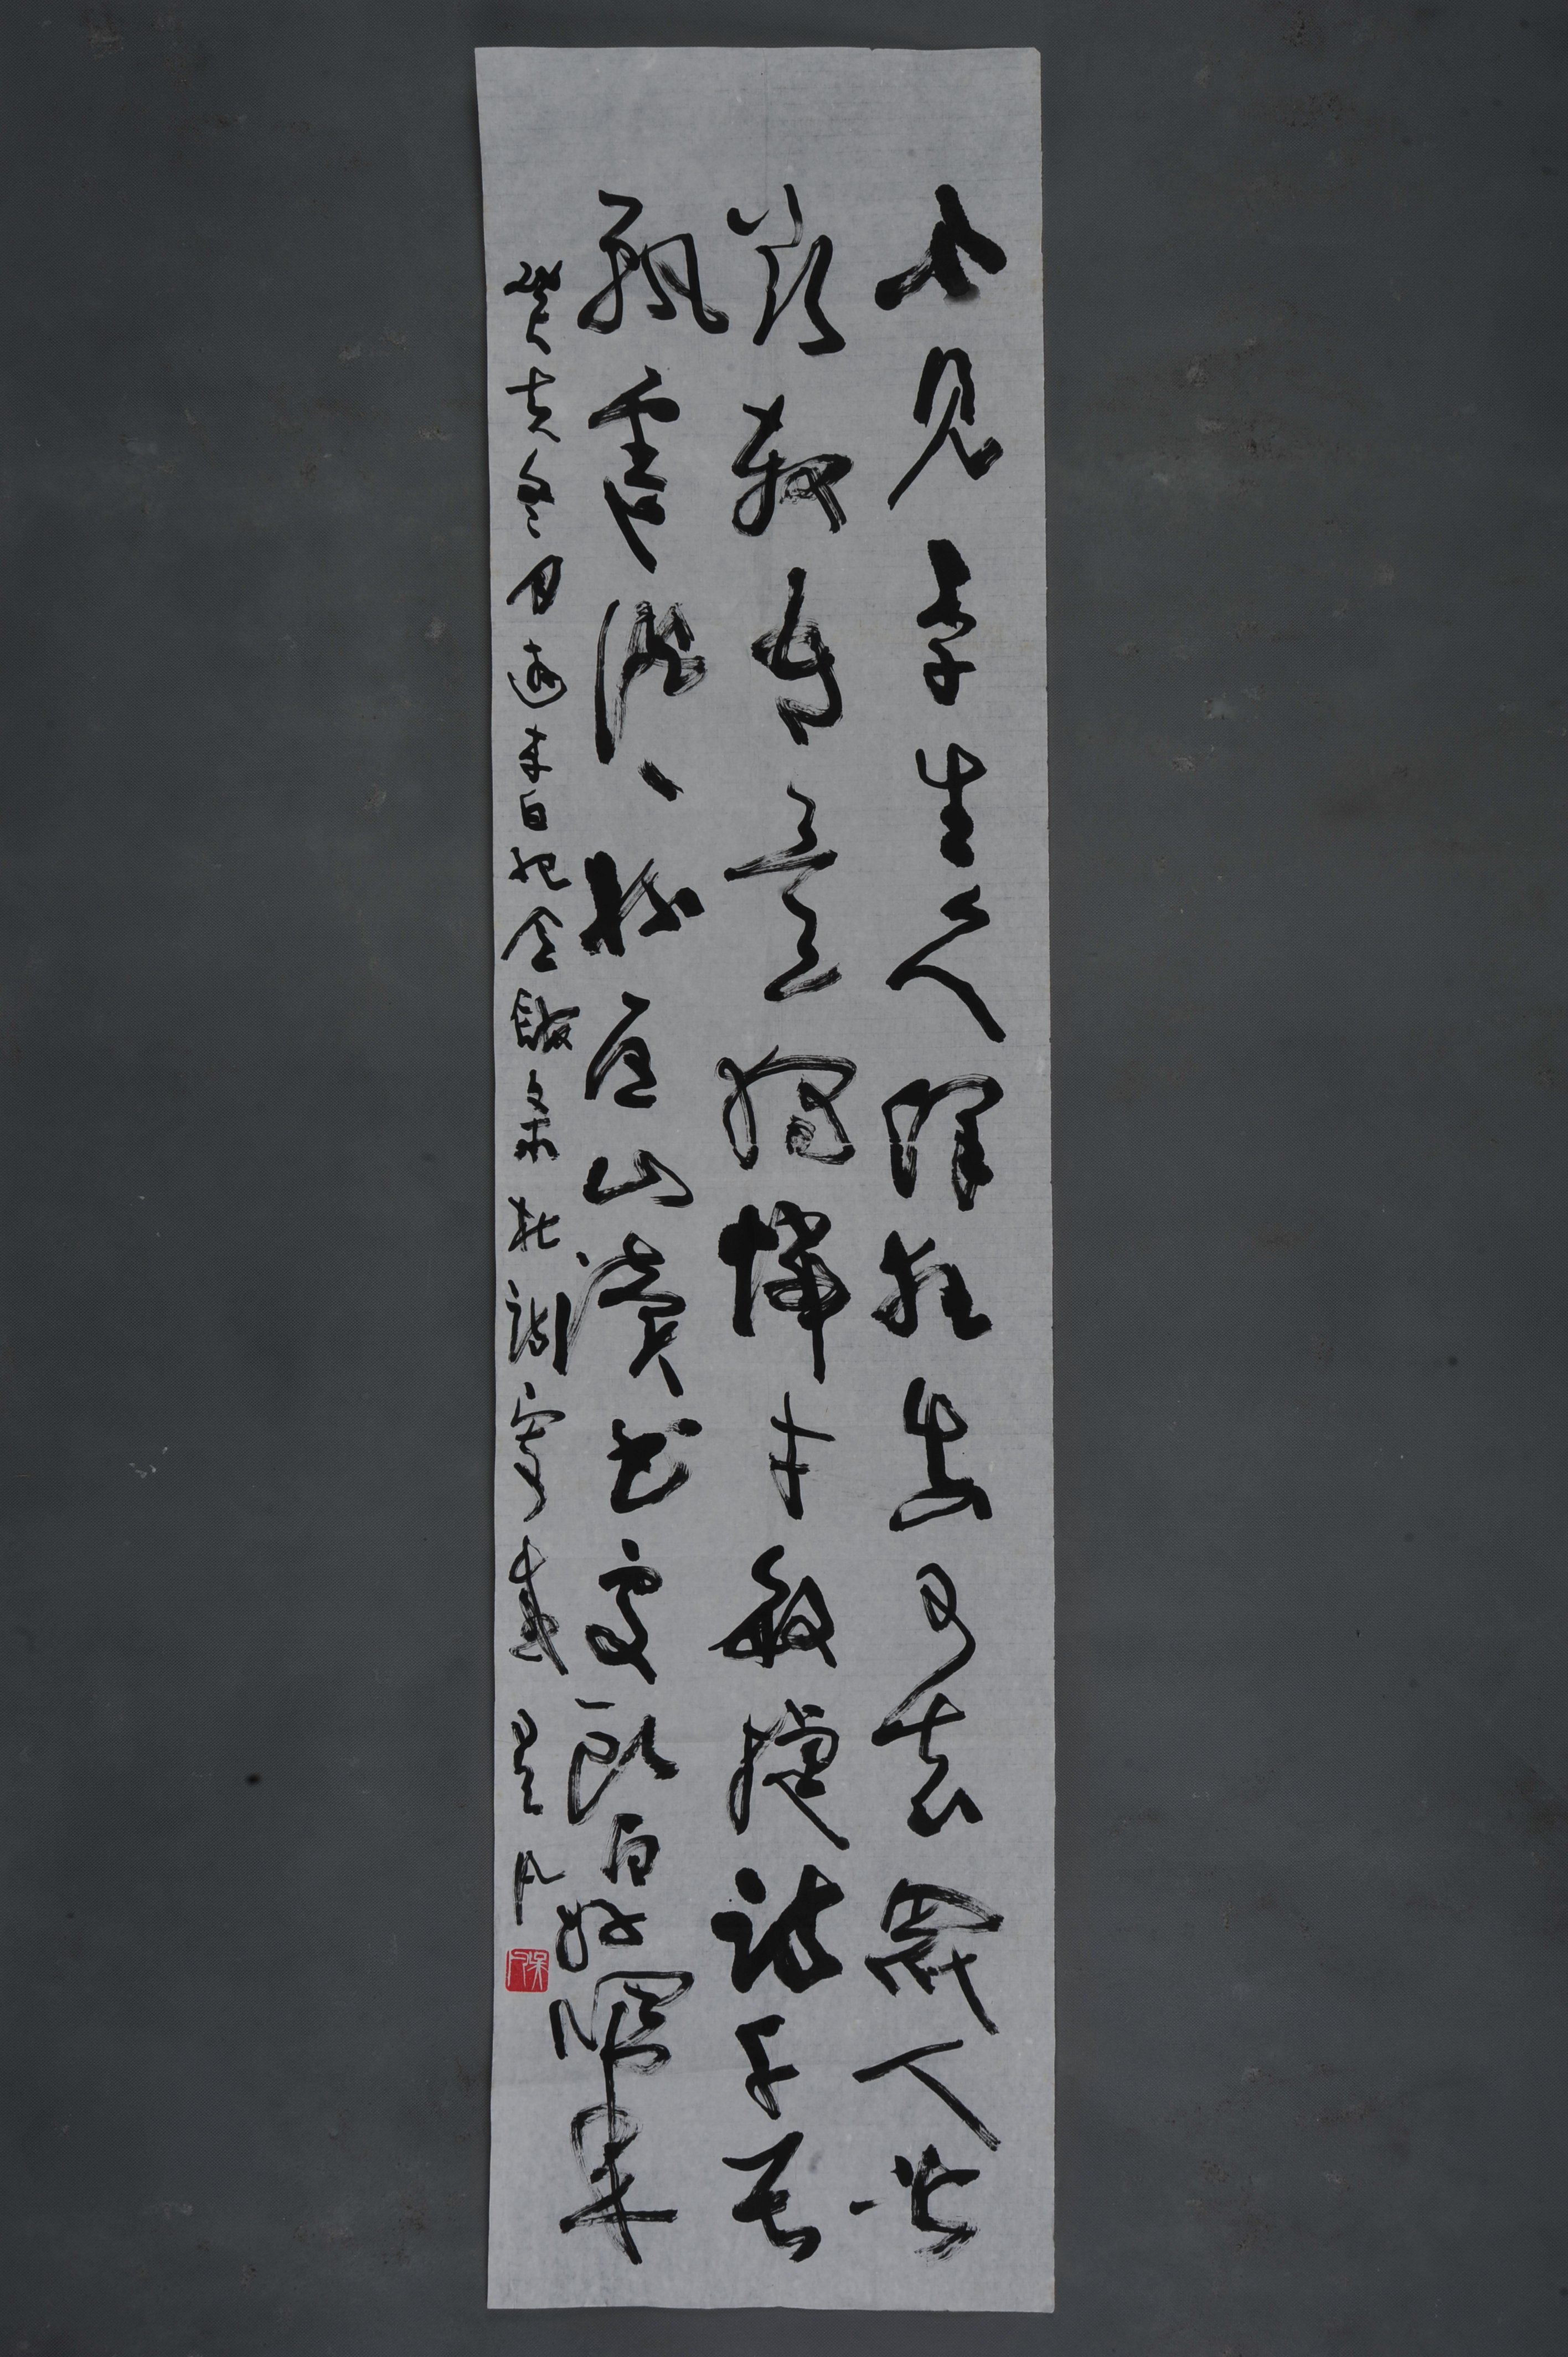 不見李生久佯狂真可哀眾人皆
欲殺吾意獨憐才敏捷詩千首
飄零酒一杯匡山讀書處頭白好歸來
癸亥冬月遊李白紀念館杜詩寄感 吳凡
吳凡